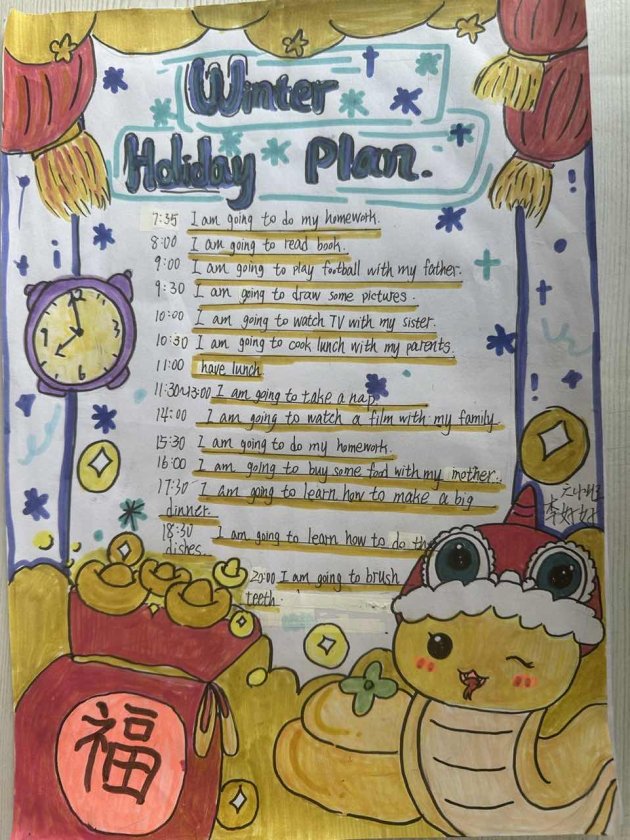 Winter
Holiday Plan.
7:35 I am going to do my homework.
8:00 I am going to read book.
9:00 I am going to play football with my father.
9:30 I am going to draw some pictures.
10:00 I am going to watch TV with my sister.
10:30 I am going to cook lunch with my parents.
11:00 have lunch
11:30~13:00 I am going to take a nap.
14:00 I am going to watch a film with my family.
15:30 I am going to do my homework.
16:00 I am going to buy some food with my mother.
17:30 I am going to learn how to make a big
dinner.
18:30 I am going to learn how to do the
dishes.
20:00 I am going to brush
teeth.
福